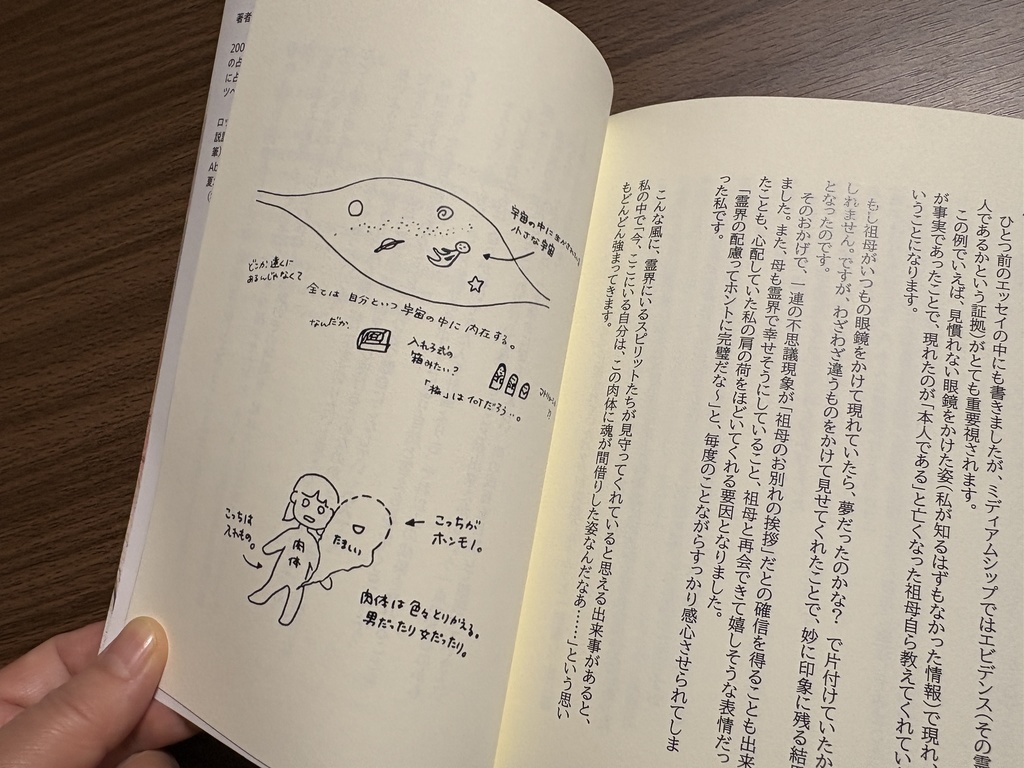 ひとつ前のエッセイの中にも書きましたが、ミディアムシップではエビデンス(その霊
人であるかという証拠)がとても重要視されます。
この例でいえば、見慣れない眼鏡をかけた姿(私が知るはずもなかった情報)で現れ、
が事実であったことで、現れたのが「本人である」と亡くなった祖母自ら教えてくれてい
いうことになります。
もし祖母がいつもの眼鏡をかけて現れていたら、夢だったのかな? で片付けていたか
しれません。ですが、わざわざ違うものをかけて見せてくれたことで、妙に印象に残る結
となったのです。
そのおかげで、一連の不思議現象が「祖母のお別れの挨拶」だとの確信を得ることも出来
ました。また、母も霊界で幸せそうにしていること、祖母と再会できて嬉しそうな表情だっ
たことも、心配していた私の肩の荷をほどいてくれる要因となりました。
「霊界の配慮ってホントに完璧だな〜」と、毎度のことながらすっかり感心させられてしま
った私です。
こんな風に、霊界にいるスピリットたちが見守ってくれていると思える出来事があると、
私の中で「今、ここにいる自分は、この肉体に魂が間借りした姿なんだなあ……」という思い
もどんどん強まってきます。
宇宙の中に
小さな宇宙
どこか遠くに
あるんじゃなくて
全ては自分という宇宙の中に内在する。
なんだか、
入れ子式の
箱みたい?
「極」は
こっちは
入れもの。
肉体
たましい
こっちが
ホンモノ。
肉体は色々とりかえる。
男だったり女だったり。
著者
200
の占
に占
ツペ
説
筆)